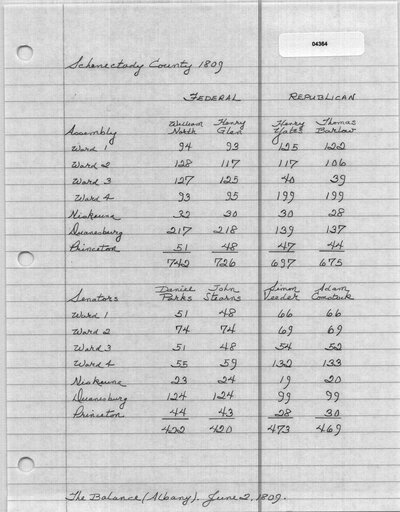 04364
Schenectady County 1809
FEDERAL REPUBLICAN
William Henry Henry Thomas
Assembly North Glen Yates Barlow
Ward 1 94 93 125 122
Ward 2 128 117 117 106
Ward 3 127 125 40 39
Ward 4 93 95 199 199
Niskeuna 32 30 30 28
Duanesburg 217 218 139 137
Princeton 51 48 47 44
742 726 697 675
Daniel John Simon Adam
Senators Parks Stearns Veeder Comstock
Ward 1 51 48 66 66
Ward 2 74 74 69 69
Ward 3 51 48 54 52
Ward 4 55 59 132 133
Niskeuna 23 24 19 20
Duanesburg 124 124 99 99
Princeton 44 43 28 30
422 420 473 469
The Balance (Albany). June 2, 1809.